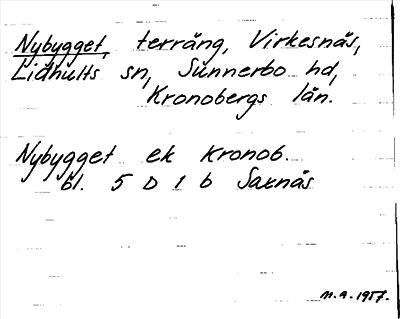 Nybygget, terräng, Virkesnäs,
Lidhults sn, Sunnerbo hd,
Kronobergs län.
Nybygget ek Kronob.
bl. 5 D 1 b Saxnäs
M.A. 1957.